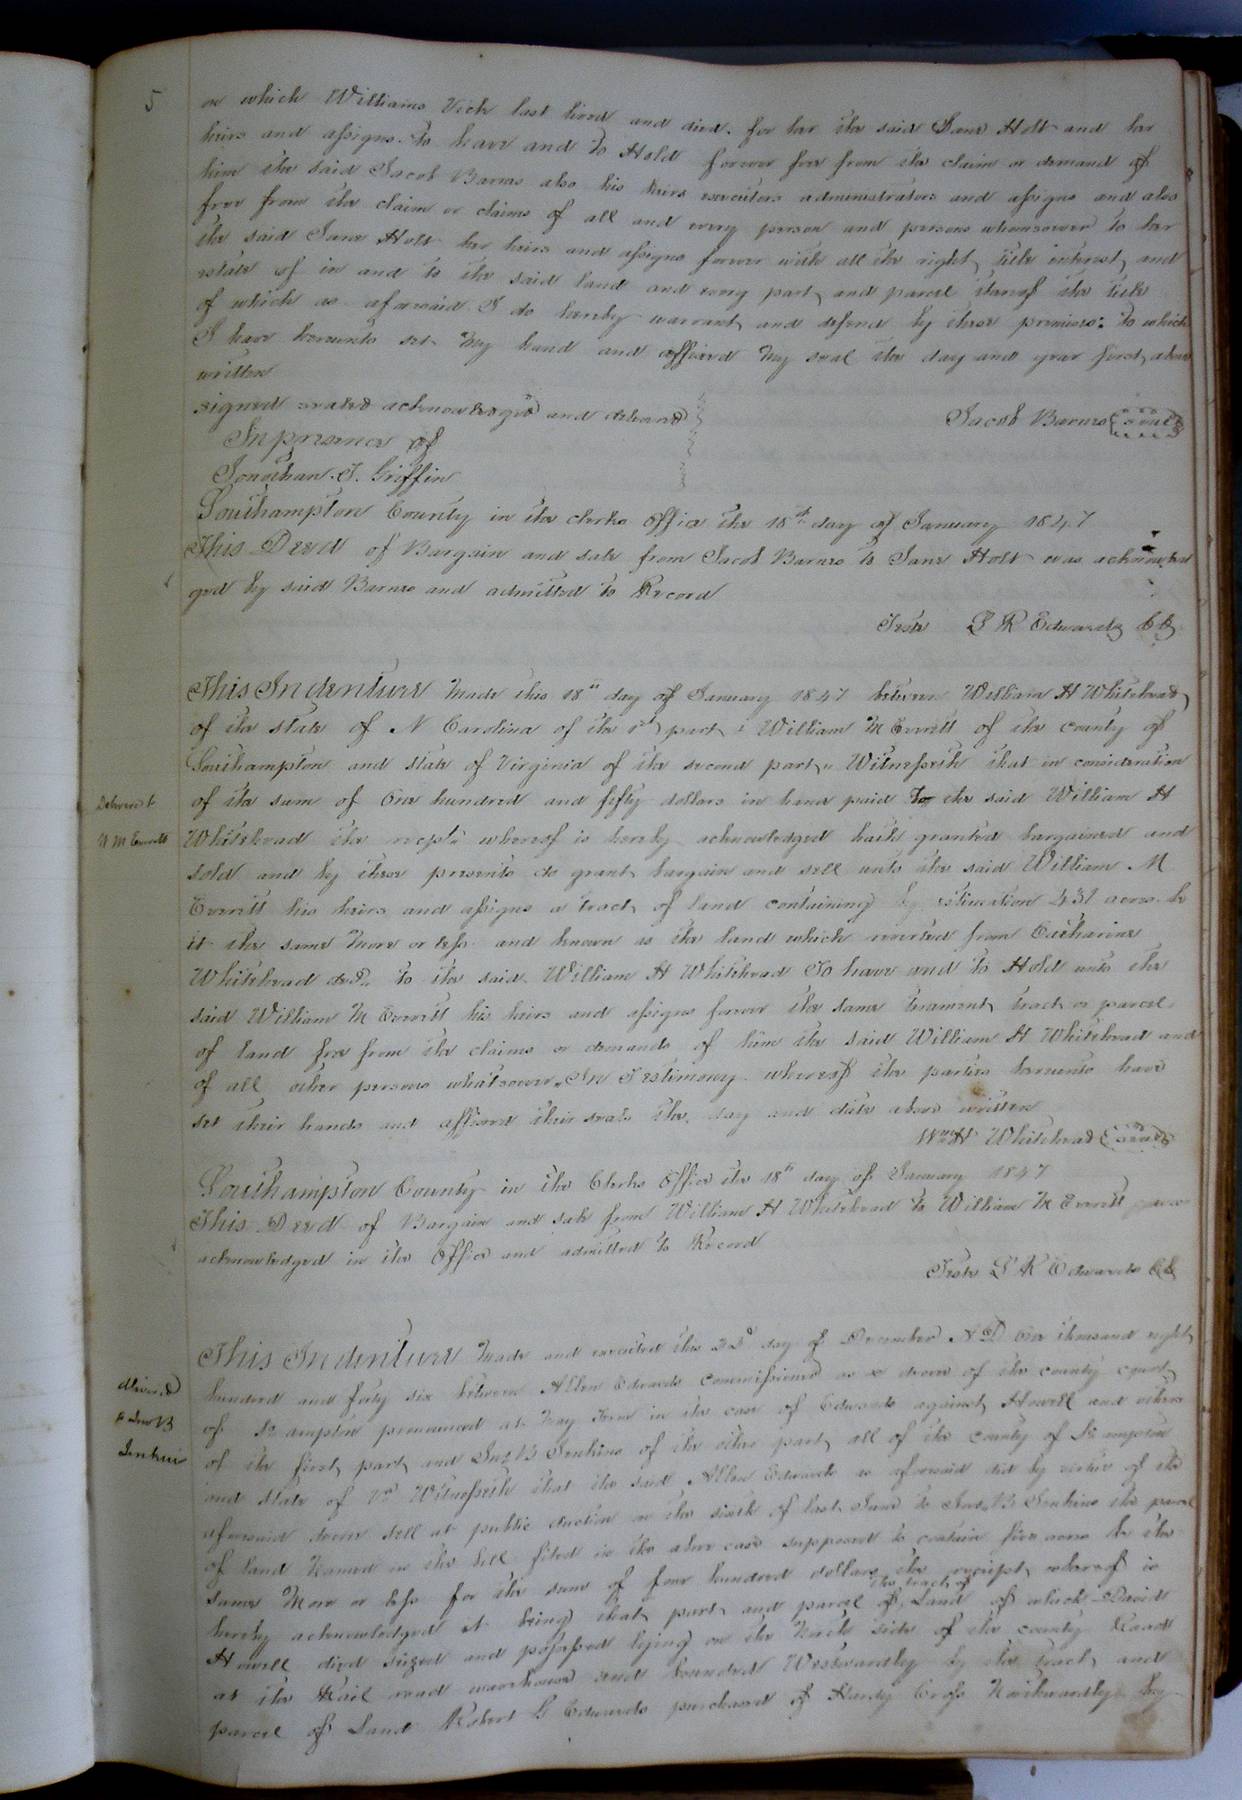 5
on which Williams Vick last lived and died. for her the said Jane Holt and her
heirs and assigns. To have and to Hold forever free from the claim or demand of
him the said Jacob Barnes also his heirs executors administrators and assigns and also
free from the claim or claims of all and every person and persons whomsoever to her
the said Jane Holt her heirs and assigns forever with all the right title interest and
estate of in and to the said land and every part and parcel thereof the title
of which as aforesaid I do hereby warrant and defend by these premises: To which
I have hereunto set my hand and affixed my seal the day and year first above
written
signed sealed acknowledged and delivered
Jacob Barnes (seal)
In presence of
Jonathan. T. Griffin
Southampton County in the clerks office the 18th day of January 1847
This Deed of Bargain and sale from Jacob Barnes to Jane Holt was acknowled
ged by said Barnes and admitted to Record
Teste L R Edwards CC
This Indenture Made this 18th day of January 1847 between William H Whitehead
of the state of N Carolina of the 1st part & William M Everitt of the county of
Southampton and state of Virginia of the second part, Witnesseth that in consideration
of the sum of One hundred and fifty dollars in hand paid to the said William H
Whitehead the recpt whereof is hereby acknowledged hath granted bargained and
sold and by these presents do grant bargain and sell unto the said William M
Everitt his heirs and assigns a tract of land containing by estimation 431 acres be
it the same More or less and known as the land which reverted from Catharine
Whitehead decd. to the said William H Whitehead To have and to Hold unto the
said William M Everitt his heirs and assigns forever the same tenament tract or parcel
of land free from the claims or demands of him the said William H Whitehead and
of all other persons whatsoever. In Testimony whereof the parties hereunto have
set their hands and affixed their seals the day and date above written
Wm H Whitehead (seal)
Delivered to
W M Everitt
Southampton County in the Clerks Office the 18th day of January 1847
This Deed of Bargain and sale from William H Whitehead to William M Everitt was
acknowledged in the Office and admitted to Record
Teste L R Edwards CC
This Indenture Made and executed this 22d day of December A D One thousand eight
hundred and forty six between Allen Edwards commissioner as a decree of the county court
of So ampton pronounced at May Term in the case of Edwards against Howell and others
of the first part and Jno B Jenkins of the other part all of the county of So ampton
and state of Va Witnesseth that the said Allen Edwards as aforesaid did by virtue of the
aforesaid decree sell at public auction on the sixth of last June to Jno B Jenkins the parcel
of land Named in the bill filed in the above case supposed to contain five acres be the
same More or less for the sum of four hundred dollars the receipt whereof is
hereby acknowledged it being that part and parcel of the tract of Land of which David
Howell died seized and possessed lying on the North side of the county Road
at the Rail road warehouse and bounded Westwardly by the tract and
parcel of Land Robert G Edwards purchased of Hardy Cross Northwardly by
delivered
to Jno B
Jenkins